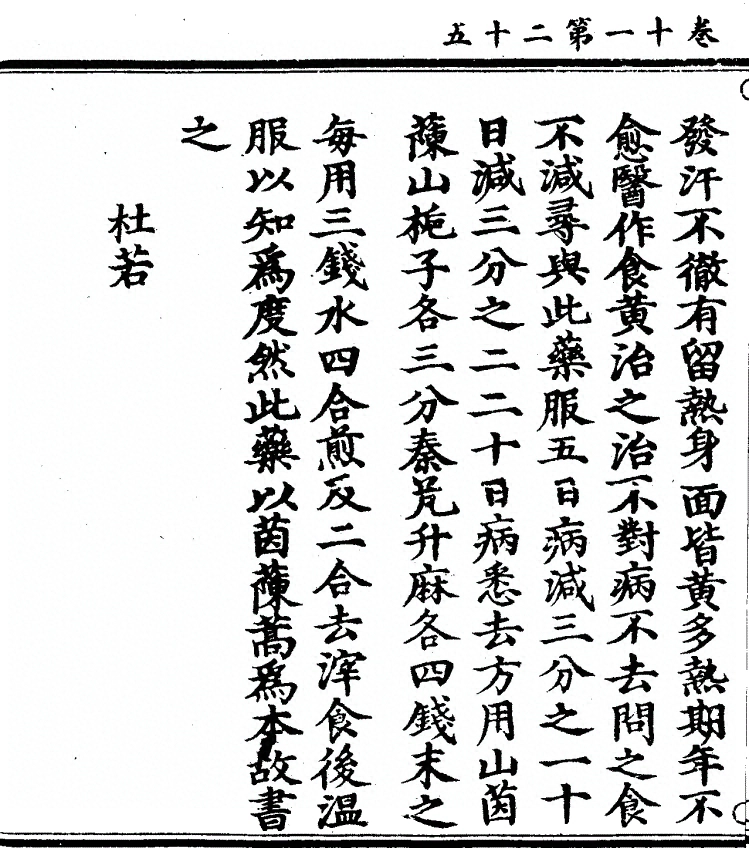 卷十一第二十五
發汗不徹有留熱身面皆黄多熱期年不
愈醫作食黄治之治不對病不去問之食
不減尋與此藥服五日病減三分之一十
日減三分之二二十日病悉去方用山茵
蔯山梔子各三分秦艽升麻各四錢末之
每用三錢水四合煎及二合去滓食後温
服以知爲度然此藥以茵蔯蒿爲本故書
之
杜若